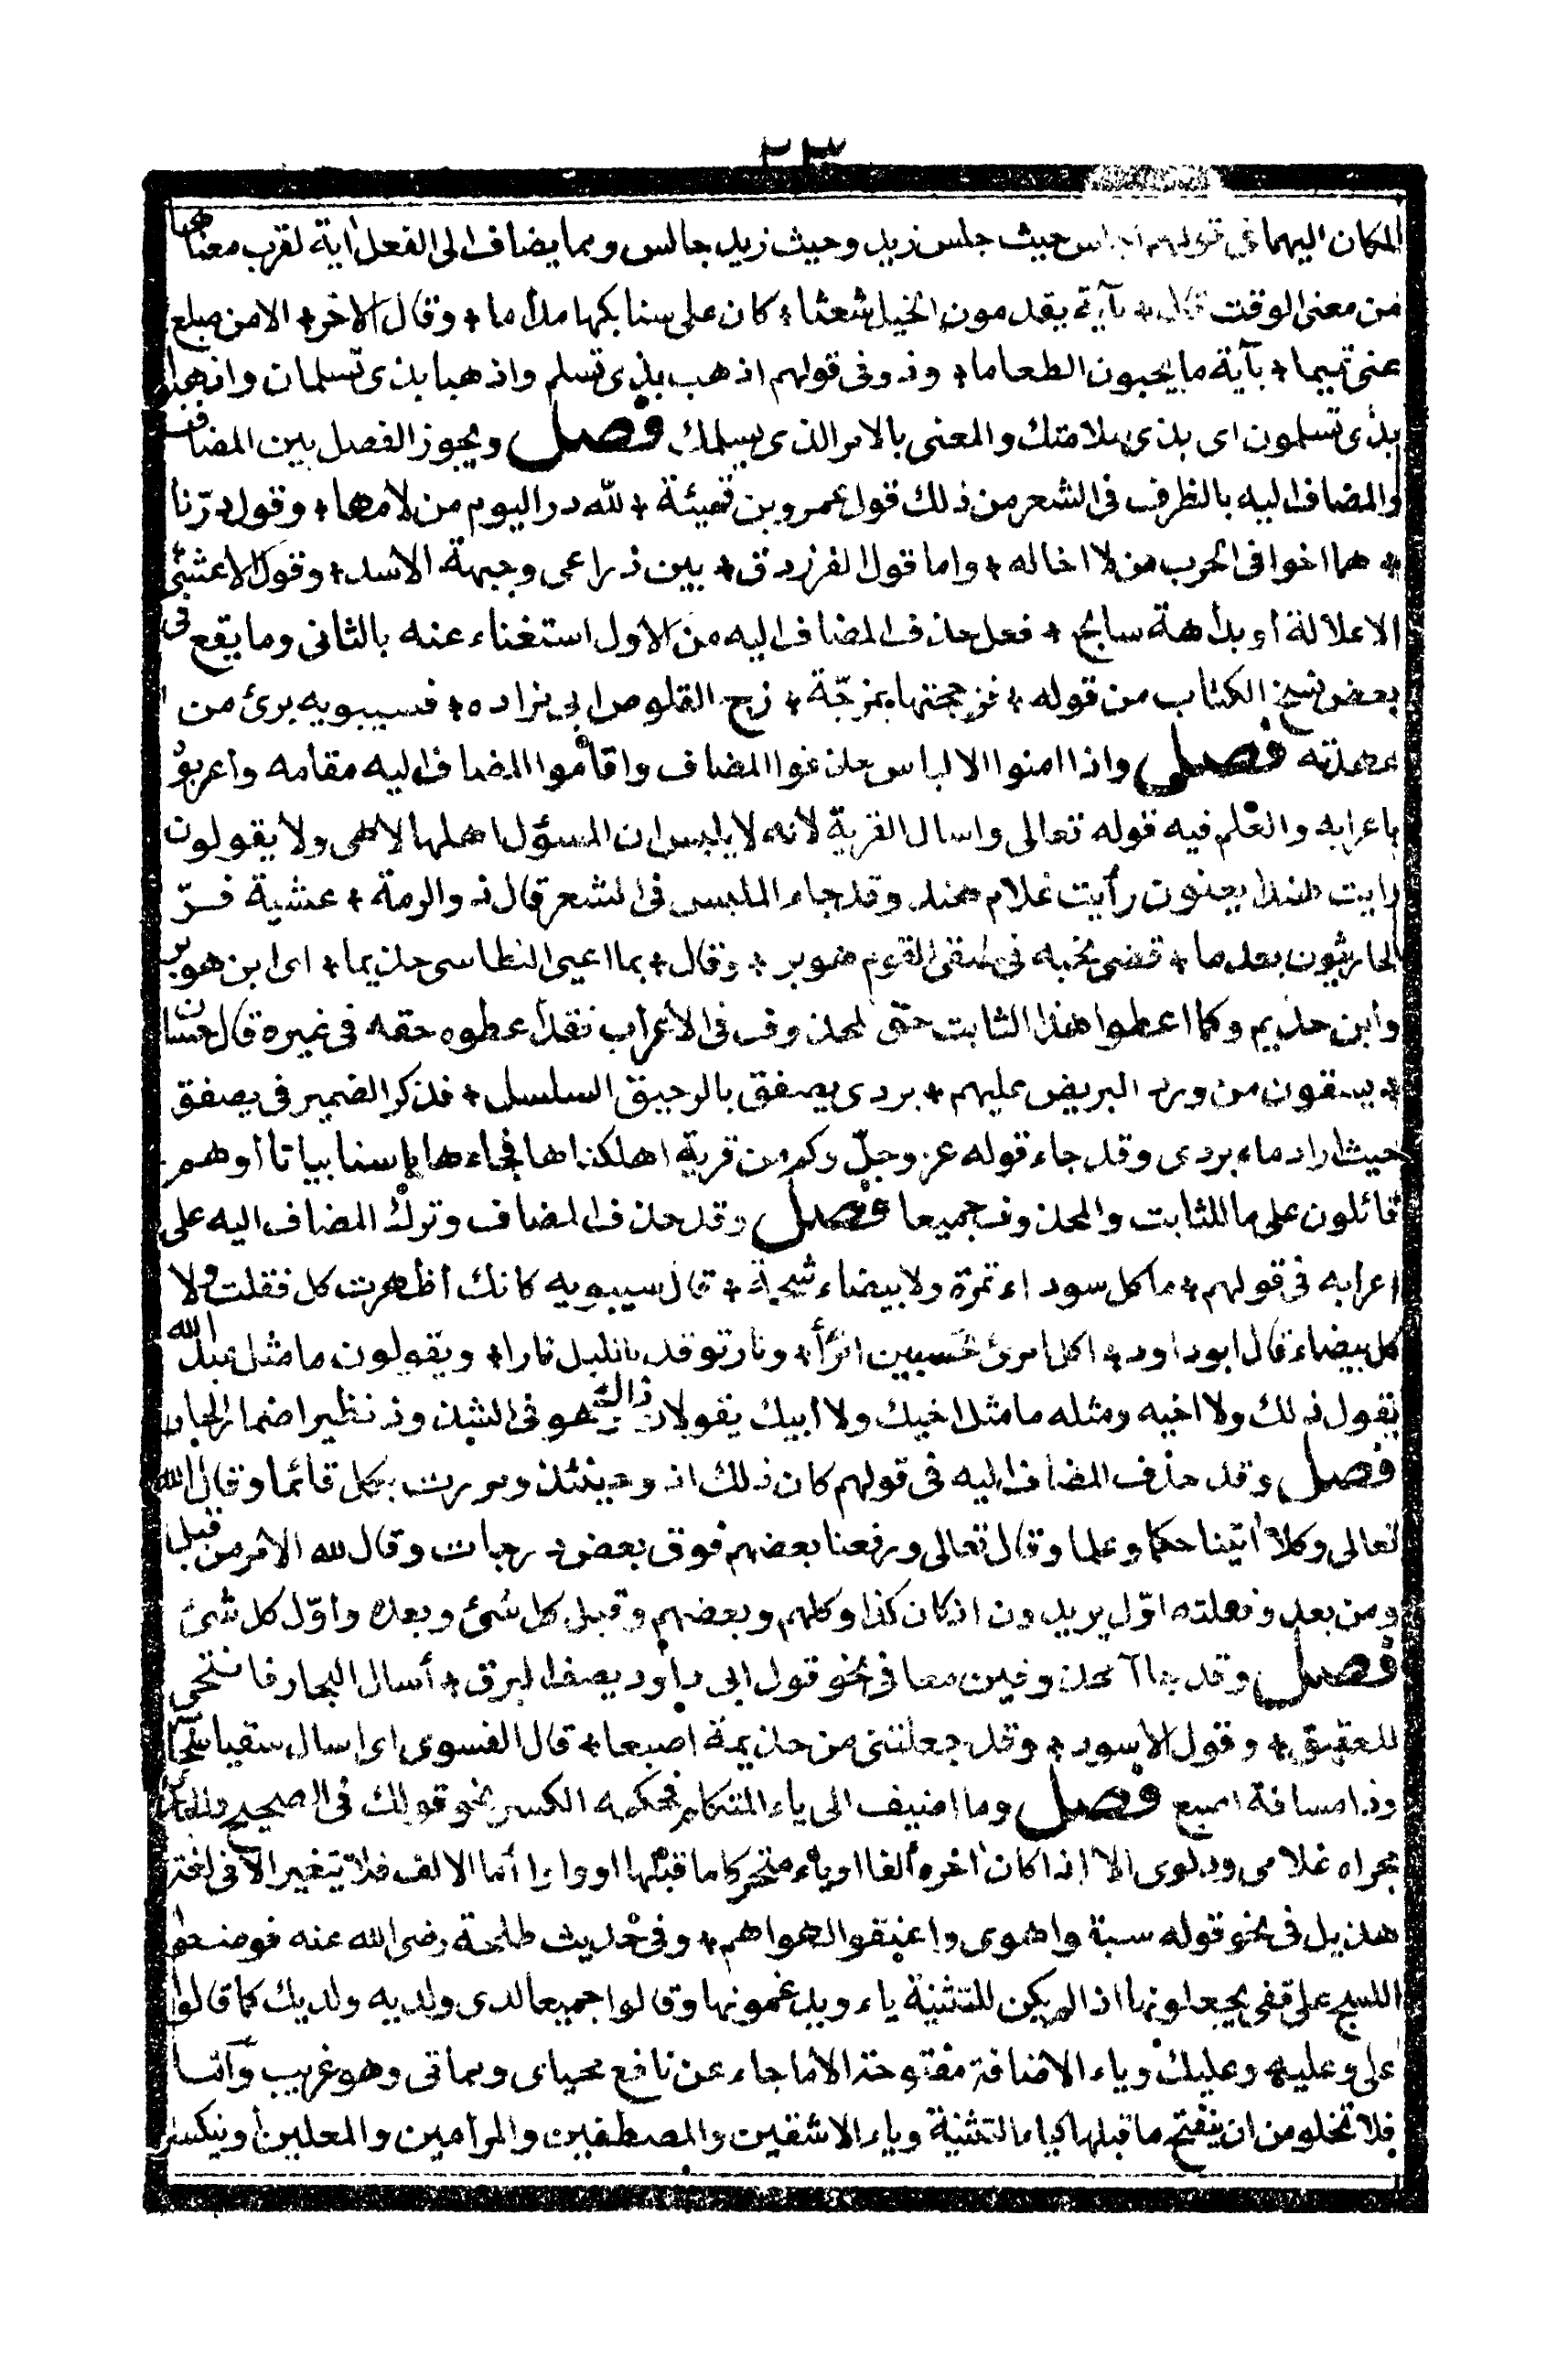 ٢٣
المكان اليهما فى قولهم اجلس حيث جلس زيد وحيث زيد جالس ومما يضاف الى الفعل اية لقرب معناها
من معنى الوقت قال * بآية يقدمون الخيل شعثا * كان على سنابكها مداما * وقال الاخر * الا من مبلغ
عنى تميما * بآية ما يحبون الطعاما * وذو فى قولهم اذهب بذى تسلم واذهبا بذى تسلمان واذهبوا
بذى تسلمون اى بذى سلامتك والمعنى بالامر الذى يسلمك فصل ويجوز الفصل بين المضاف
والمضاف اليه بالظرف فى الشعر من ذلك قول عمرو بن قميئة * لله در اليوم من لامها * وقول درنا
* هما اخوا فى الحرب من لا اخا له * واما قول الفرزدق * بين ذراعى وجبهة الاسد * وقول الاعشى
الا علالة او بداهة سابح * فعل حذف المضاف اليه من الاول استغناء عنه بالثانى وما يقع فى
بعض نسخ الكتاب من قوله * فزججتها بمزجّة * زج القلوص ابى مزاده * فسيبويه برئ من
عهدته فصل واذا امنوا الالباس حذفوا المضاف واقاموا المضاف اليه مقامه واعربوه
باعرابه والعلم فيه قوله تعالى واسال القرية لانه لا يلبس ان المسؤل اهلها لا هى ولا يقولون
رايت هندا يعنون رأيت غلام هند وقد جاء الملبس فى الشعر قال ذو الرمة * عشية فرّ
الحارثيون بعد ما * قضى نحبه فى ملتقى القوم هوبر * وقال * بما اعيى النطاسى حذيما * اى ابن هوبر
وابن حذيم وكما اعطوا هذا الثابت حق المحذوف فى الاعراب فقد اعطوه حقه فى غيره قال حسان
* يسقون من ورد البريص عليهم * بردى يصفق بالرحيق السلسل * فذكر الضمير فى يصفق
حيث اراد ماء بردى وقد جاء قوله عز وجلّ وكم من قرية اهلكناها فجاءها باسنا بياتا او هم
قائلون على ما للثابت والمحذوف جميعا فصل وقد حذف المضاف وترك المضاف اليه على
اعرابه فى قولهم * ما كل سوداء تمرة ولا بيضاء شحمة * قال سيبويه كانك أظهرت كل فقلت ولا
كل بيضاء قال ابو داود * اكل امرئ تحسبين امرأ * ونار توقد بالليل نارا * ويقولون ما مثل عبد الله
يقول ذلك ولا اخيه ومثله ما مثل اخيك ولا أبيك يقولان ذلك هو فى الشذوذ نظير اضمار الجار
فصل وقد حذف المضاف اليه فى قولهم كان ذلك اذ وحينئذ ومررت بكل قائما وقال الله
تعالى وكلا اتينا حكما وعلما وقال تعالى ورفعنا بعضهم فوق بعض درجات وقال لله الامر من قبل
ومن بعد وفعلته اوّل يريدون اذ كان كذا وكلهم وبعضهم وقبل كل شئ وبعده واوّل كل شئ
فصل وقد جاآ محذوفين معا فى نحو قول ابى داود يصف البرق * أسال البحار فانتحى
للعقيق * وقول الاسود * وقد جعلتنى من حذيمة اصبعا * قال الفسوى اى اسال سقيا سحابه
وذا مسافة اصبع فصل وما اضيف الى ياء المتكلم فحكمه الكسر نحو قولك فى الصحيح والجارى
مجراه غلامى ودلوى الا اذا كان اخره ألفا او ياء متحركا ما قبلها او واوا أما الالف فلا تتغير الا فى لغة
هذيل فى نحو قوله سبقوا هوى واعنقوا لهواهم * وفى حديث طلحة رضى الله عنه فوضعوا
اللج على قفى يجعلونها اذا لم يكن للتثنية ياء ويدغمونها وقالوا جميعا لدى ولديه ولديك كما قالوا
على وعليه وعليك وياء الاضافة مفتوحة الا ما جاء عن نافع محياى ومماتى وهو غريب وأمّا
فلا تخلو من ان ينفتح ما قبلها كياء التثنية وياء الاشقين والمصطفين والمرامين والمعلين أو ينكسر